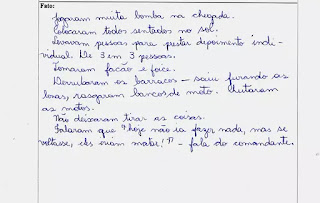 Fato:
Jogaram muita bomba na chegada.
Colocaram todos sentados no sol.
Levavam pessoas para prestar depoimento indi-
vidual. De 3 em 3 pessoas.
Tomaram facão e foice.
Derrubaram os barracos - saiu furando as
lonas, rasgaram bancos de moto. Chutaram
as motos.
Não deixaram tirar as coisas.
Falaram que "hoje não ia fazer nada, mas se
voltasse, eles iriam matar!" - fala do comandante.